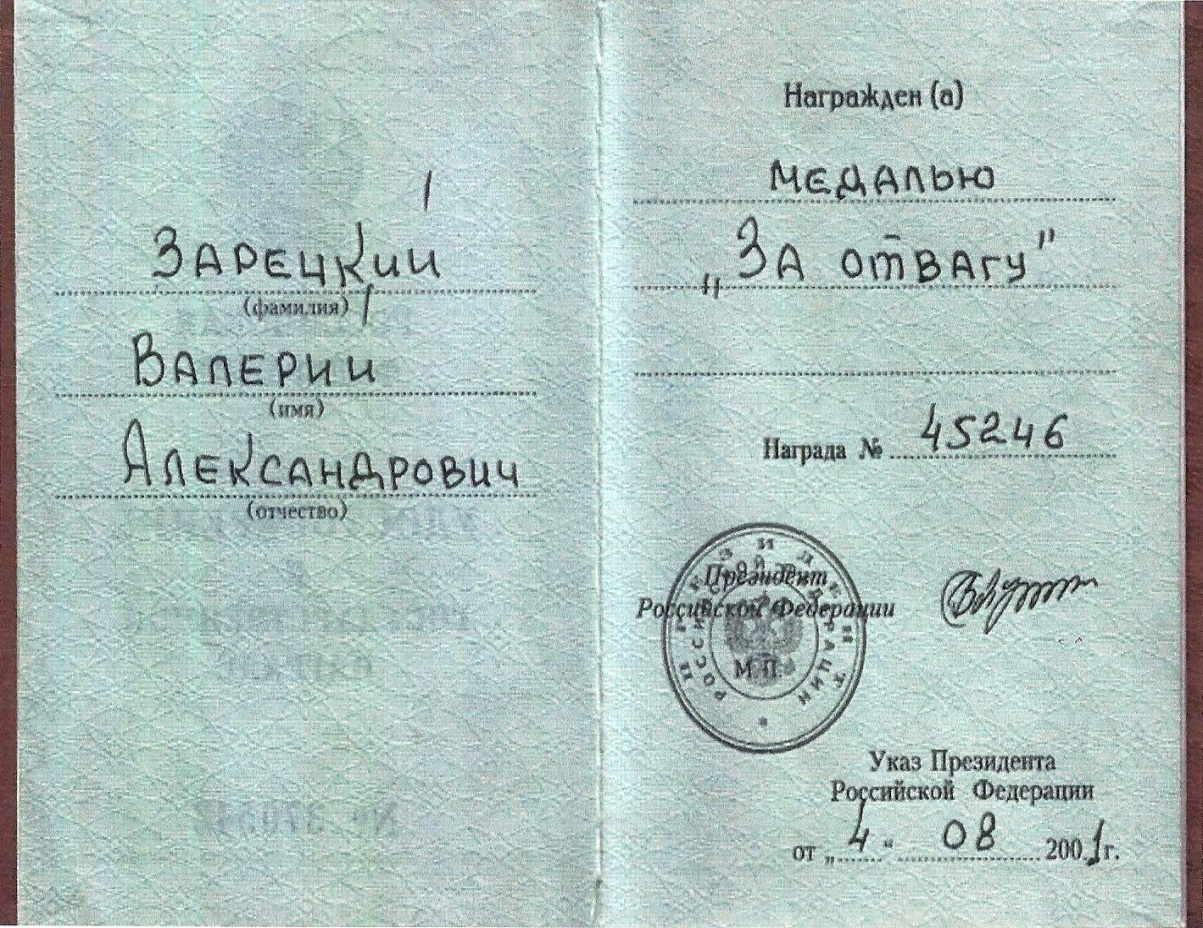 Зарецкий
(фамилия)
Валерий
(имя)
Александрович
(отчество)
Награжден (а)
медалью
„За отвагу"
Награда № 45246
Президент
Российской Федерации
М.П.
ПРЕЗИДЕНТ
РОССИЙСКОЙ ФЕДЕРАЦИИ
Указ Президента
Российской Федерации
от „4" 08 2001г.